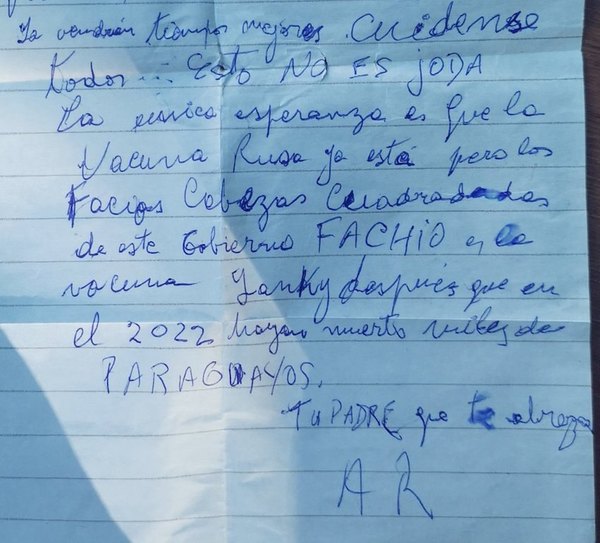 Ya vendrán tiempos mejores. Cuidense
todos... Esto NO ES JODA
La unica esperanza es que la
Vacuna Rusa ya está pero los
Facios Cabezas Cuadradas
de este Gobierno FACHIO es la
vacuna Yanky después que en
el 2022 hayan muerto miles de
PARAGUAYOS.
Tu PADRE que te abraza
AR